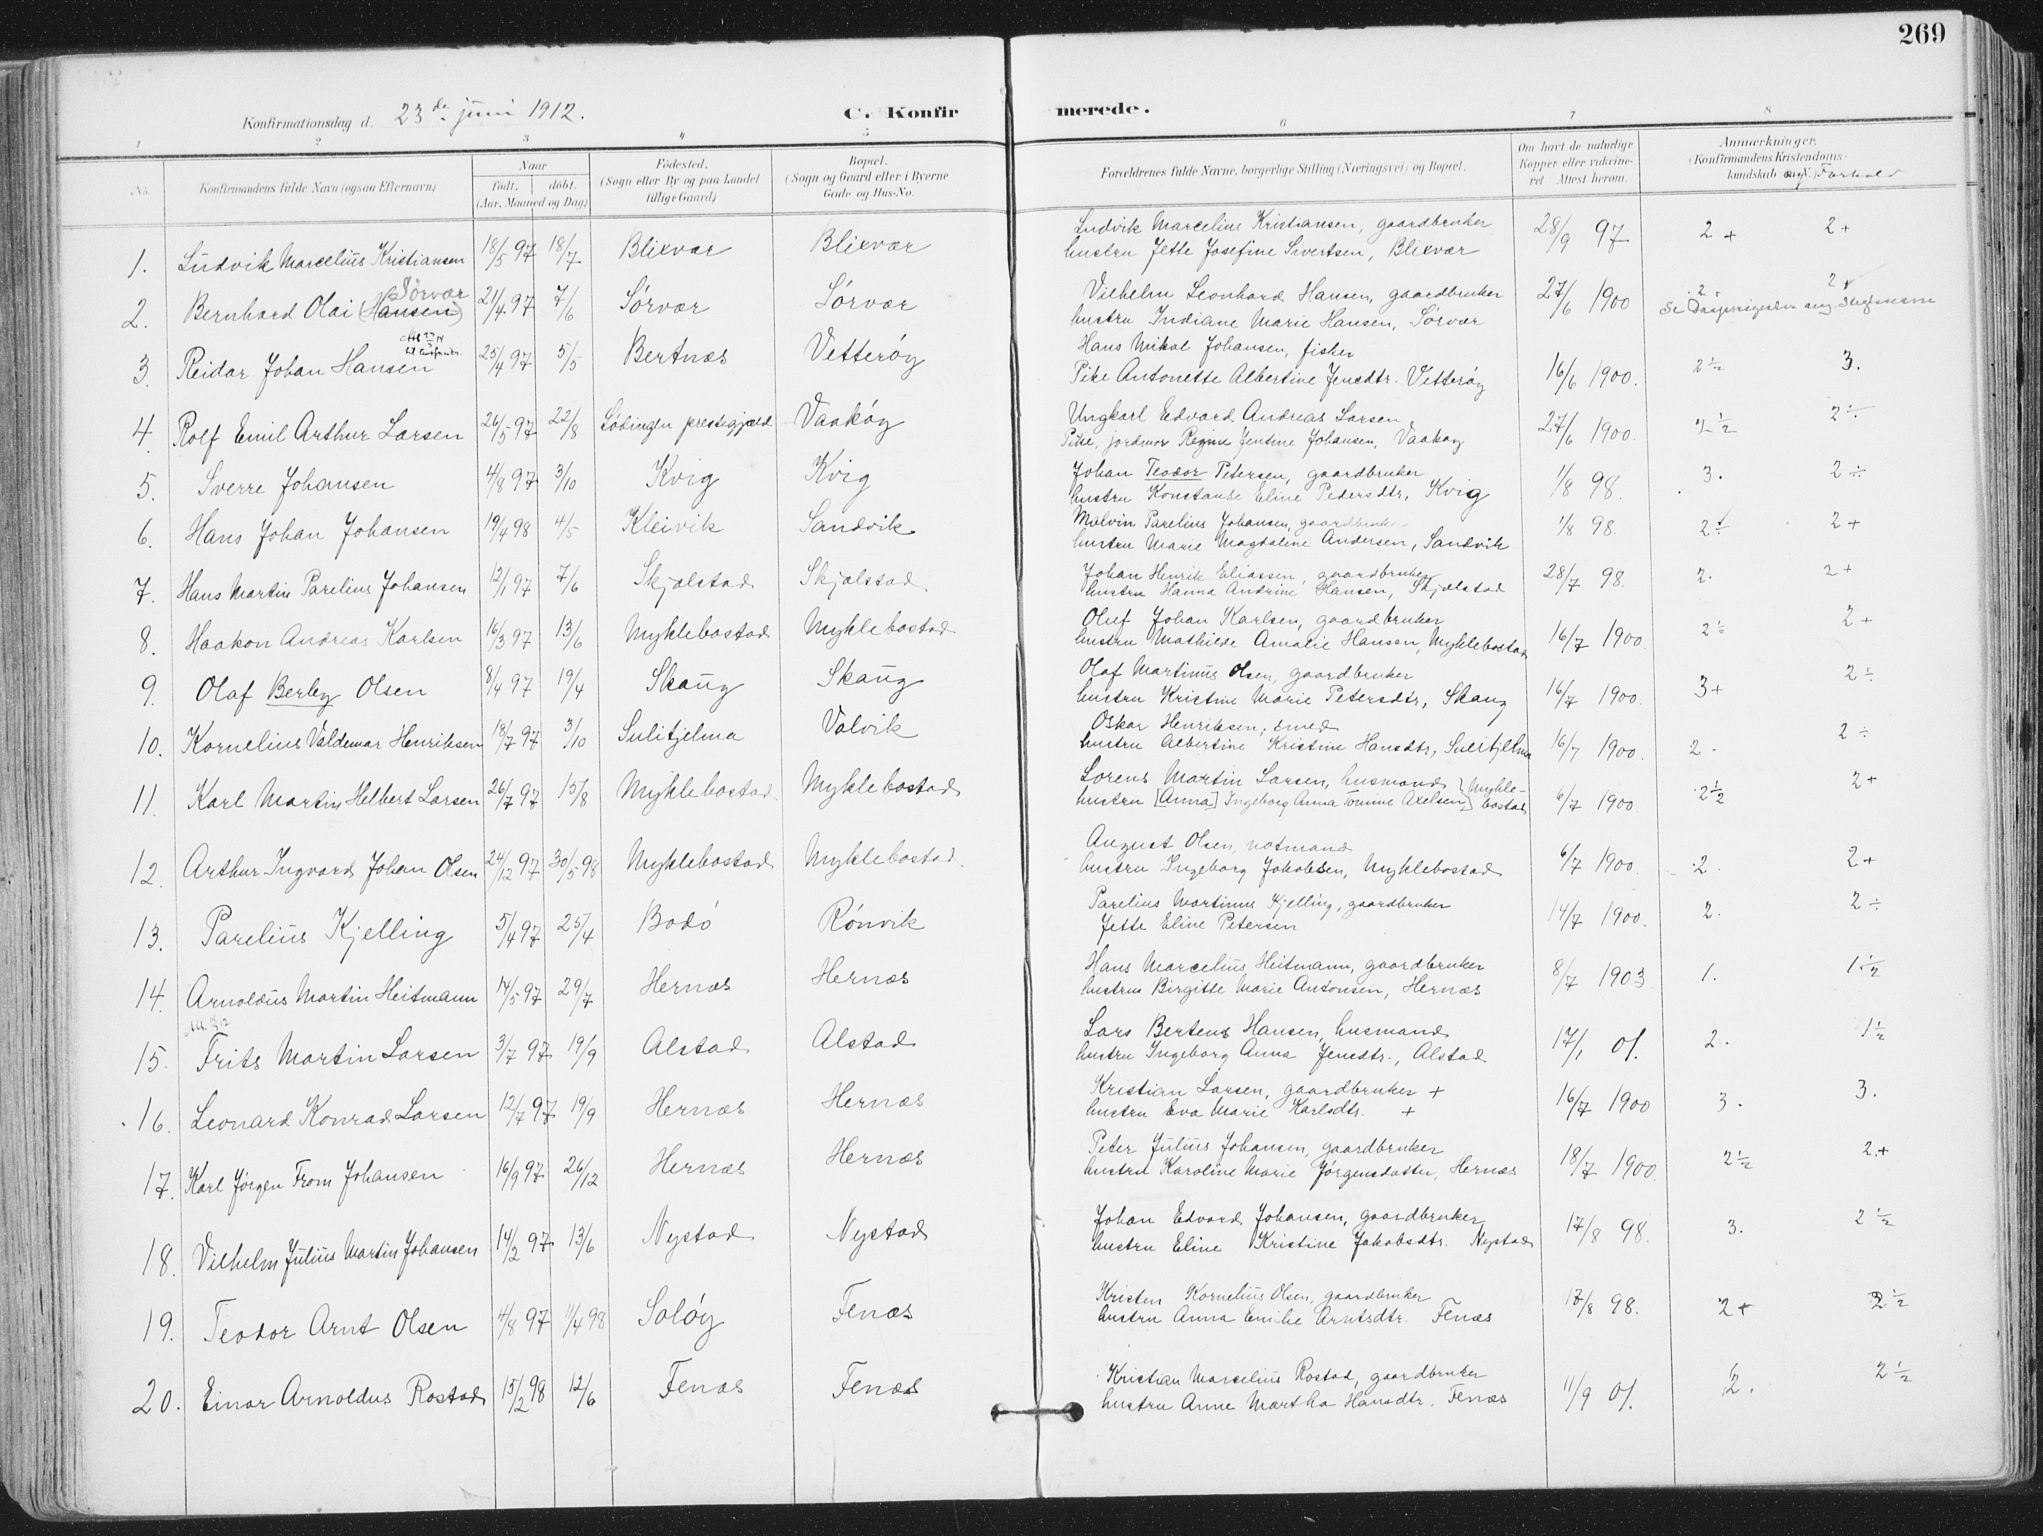 269
Konfirmationsdag d. 23de juni 1912.
C. Konfirmerede.
1 2 3 4 5 6 7 8
No.
Konfirmandens fulde Navn (ogsaa Efternavn)
Naar
født. døbt.
(Aar, Maaned og Dag)
Fødested.
(Sogn eller By og paa Landet
tillige Gaard)
Bopæl.
(Sogn og Gaard eller i Byerne
Gade og Hus-No.
Forældrenes fulde Navne, borgerlige Stilling (Næringsvei) og Bopæl.
Om havt de naturlige
Kopper eller vakcine-
ret Attest herom.
Anmærkninger.
(Konfirmandens Kristendoms-
kundskab og Forhold
1. Ludvik Marcelius Kristiansen 18/5 97 18/7 Blixvær Blixvær
Ludvik Marcelius Kristiansen, gaardbruker
hustru Jette Josefine Sivertsen, Blixvær 28/9 97 2+ 2+
Sørvær
2. Bernhard Olai (Hansen) 21/4 97 7/6 Sørvær Sørvær
Vilhelm Leonhard Hansen, gaardbruker
hustru Indiane Marie Hansen, Sørvær 27/6 1900 2. 2+
3. Reidar Johan Hansen 25/4 97 5/5 Bertnæs Vetterøy
Hans Mikal Johansen, fisker
Pike Antonette Albertine Jensdtr. Vetterøy 16/6 1900. 2½ 3.
4. Rolf Emil Arthur Larsen 26/5 97 22/8 Lødingen prestegjæld Vaakøy
Ungkarl Edvard Andreas Larsen
Pike, jordmor Regine Jentine Johansen, Vaakøy 27/6 1900. 2½ 2÷
5. Sverre Johansen 4/8 97 3/10 Kvig Kvig
Johan Teodor Petersen, gaardbruker
hustru Konstanse Eline Pedersdtr, Kvig 1/8 98. 3. 2÷
6. Hans Johan Johansen 19/4 98 4/5 Kleivik Sandvik
Malvin Parelius Johansen, gaardbruker
hustru Marie Magdaline Andersen, Sandvik 1/8 98. 2÷ 2+
7. Hans Martin Parelius Johansen 12/1 97 7/6 Skjælstad Skjælstad
Johan Henrik Eliassen, gaardbruker
hustru Hanna Andrine Hansen, Skjælstad 28/7 98. 2. 2+
8. Haakon Andreas Karlsen 16/3 97 13/6 Myklebostad Myklebostad
Oluf Johan Karlsen, gaardbruker
hustru Mathilde Amalie Hansen, Myklebostad 16/7 1900. 2½ 2+
9. Olaf Berby Olsen 8/4 97 19/4 Skaug Skaug
Olaf Martinus Olsen, gaardbruker
hustru Kristine Marie Petersdtr, Skaug 16/7 1900. 3+ 2÷
10. Kornelius Valdemar Henriksen 18/7 97 3/10 Sulitjelma Valvik
Oskar Henriksen, smed
hustru Albertine Kristine Hansdtr, Sulitjelma 16/7 1900. 2. 2÷
11. Karl Martin Helbert Larsen 26/7 97 15/8 Myklebostad Myklebostad
Lorens Martin Larsen, husmand } Mykle-
hustru [Anna] Ingeborg Anna Tomine Axelsen } bostad 6/7 1900. 2½ 2+
12. Arthur Ingvard Johan Olsen 24/12 97 30/5 98 Myklebostad Myklebostad.
August Olsen, notmand
hustru Ingeborg Jakobsen, Myklebostad 6/7 1900. 2. 2+
13. Parelius Kjelling 5/4 97 25/4 Bodø Rønvik
Parelius Martinus Kjelling, gaardbruker
Jette Eline Petersen 14/7 1900. 2. 2÷
14. Arnoldus Martin Heitmann 14/5 97 29/7 Hernæs Hernæs
Hans Marcelius Heitmann, gaardbruker
hustru Birgitte Marie Antonsen, Hernæs 8/7 1903. 1. 1½
15. Frits Martin Larsen 3/7 97 19/9 Alstad Alstad
Lars Bertens Hansen, husmand
hustru Ingeborg Anna Jensdtr., Alstad 17/1 01. 2. 1½
16. Leonard Konrad Larsen 12/7 97 19/9 Hernæs Hernæs
Kristian Larsen, gaardbruker +
hustru Eva Marie Karlsdtr. + 16/7 1900 3. 3.
17. Karl Jørgen From Johansen 16/9 97 26/12 Hernæs Hernæs
Peter Julius Johansen, gaardbruker
hustru Karoline Marie Jørgensdatter, Hernæs 18/7 1900. 2½ 2+
18. Vilhelm Julius Martin Johansen 14/2 97 13/6 Nystad Nystad
Johan Edvard Johansen, gaardbruker
hustru Eline Kristine Jakobsdtr. Nystad 17/8 98. 3. 2½
19. Teodor Arnt Olsen 4/8 97 11/4 98 Saløy Fenæs
Kristen Kornelius Olsen, gaardbruker
hustru Anna Emilie Arntsdtr. Fenæs 17/8 98. 2+ 2½
20. Einar Arnoldus Rostad 15/2 98 12/6 Fenæs Fenæs
Kristian Marcelius Rostad, gaardbruker
hustru Anne Martha Hansdtr. Fenæs 11/9 01. 2. 2½